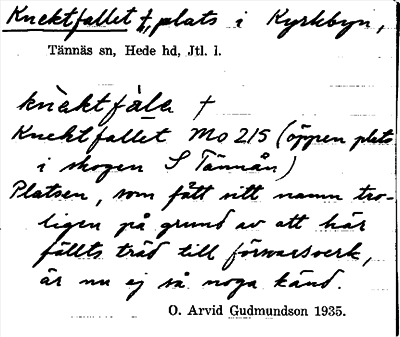 Knektfallet †, plats i Kyrkbyn,
Tännäs sn, Hede hd, Jtl. l.
knὲktfàlɐ †
Knektfallet Mo 215 (öppen plats
i skogen S Tännån)
Platsen, som fått sitt namn tro-
ligen på grund av att här
fällts träd till försvarsverk,
är nu ej så noga känd.
O. Arvid Gudmundson 1935.